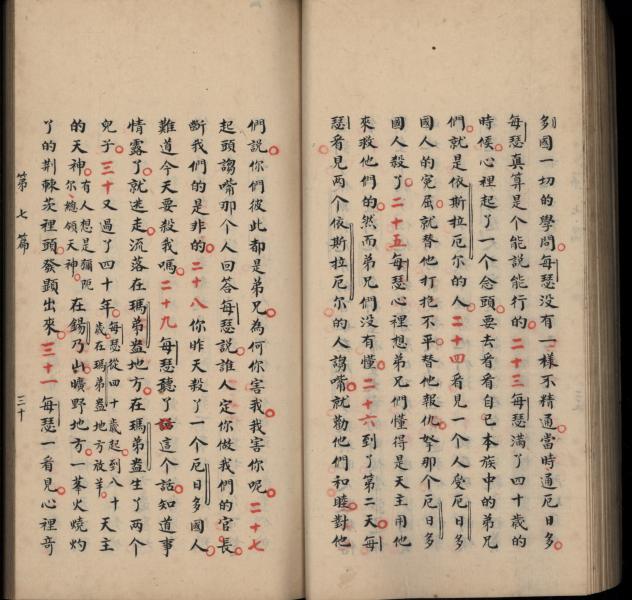 多國一切的學問每瑟没有一樣不精通當時通厄日多
每瑟真算是个能説能行的二十三每瑟滿了四十歲的
時候心裡起了一个念頭要去看看自己本族中的弟兄
們就是依斯拉厄尔的人二十四看見一个人受厄日多
國人的寃屈就替他打抱不平替他報仇拏那个厄日多
國人殺了二十五每瑟心裡想弟兄們懂得是天主用他
來救他們的然而弟兄們没有懂二十六到了第二天每
瑟看見两个依斯拉厄尔的人謅嘴就勸他們和睦對他
們説你們彼此都是弟兄為何你害我我害你呢二十七
起頭謅嘴那个人回答每瑟説誰人定你做我們的官長
斷我們的是非的二十八你昨天殺了一个厄日多國人
難道今天要殺我嗎二十九每瑟聼了話這个話知道事
情露了就迯走流落在瑪弟盎地方在瑪弟盎生了两个
兒子三十又過了四十年每瑟從四十歲起到八十歲在瑪弟盎地方放羊天主
的天神有人想是彌阨尔總領天神在錫乃山曠野地方一莑火燒灼
了的荆棘茨裡頭發顕出來三十一每瑟一看見心裡竒
第七篇
三十